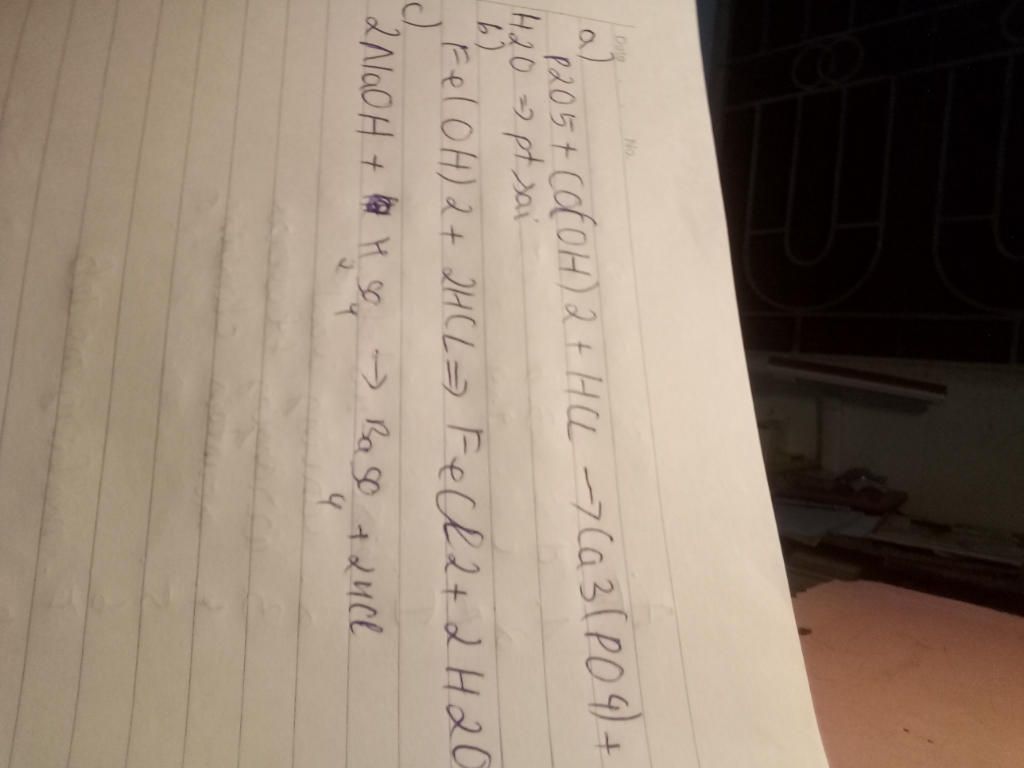 Date No
a) P2O5 + Ca(OH)2 + HCl → Ca3(PO4) +
H2O => pt sai
b)
Fe(OH)2 + 2HCl => FeCl2 + 2H2O
c)
2NaOH + H2SO4 → BaSO4 + 2HCl